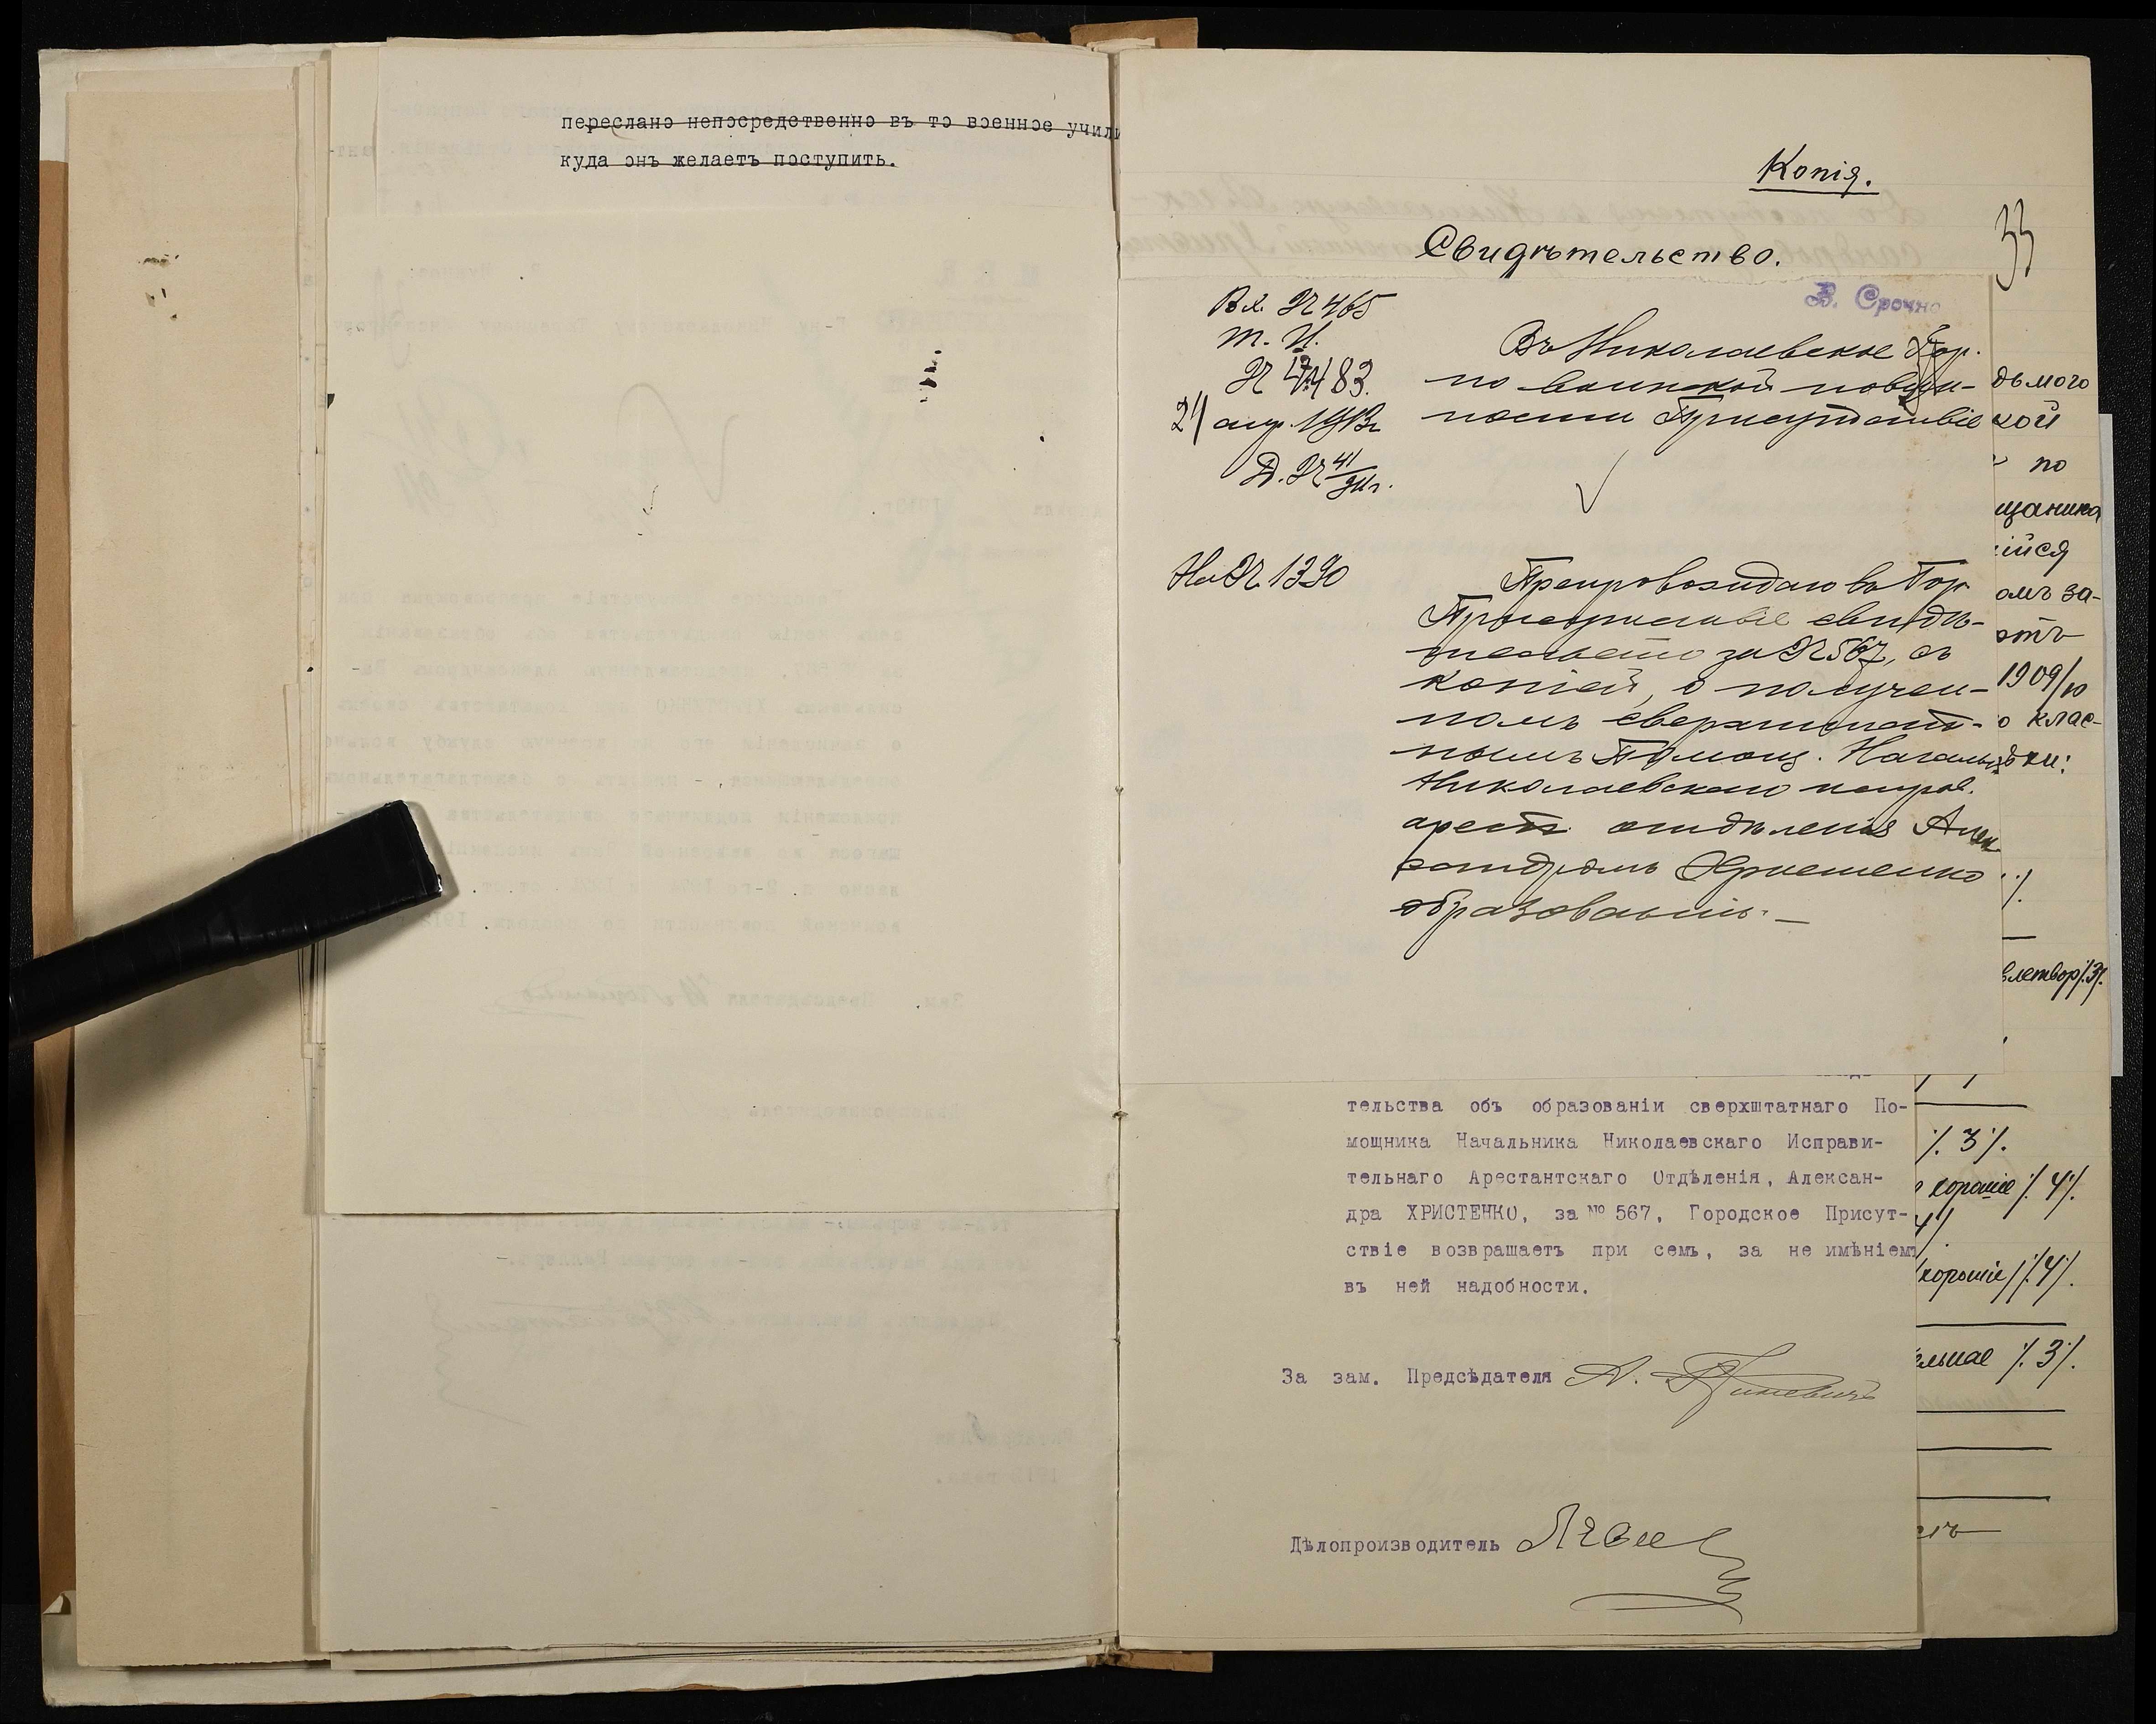 переслано непосредственно въ то военное учили
куда онъ желаетъ поступить.
Копія.
33
Свидѣтельство.
В. Срочно
Вх. № 465
Т. И.
№ 17483.
24 апр. 1913 г.
Д. № 41/911 г.
Въ Николаевское Гор.
по воинской повин-
ности Присутствіе
На № 1390
Препровождаю въ Гор
Присутствіе свидѣ-
тельство за № 567, съ
копіей, о получен-
номъ сверхштат-
нымъ Помощ. Начальн
Николаевскаго исправ.
арест. отдѣленія Алек
сандромъ Христенко
образованіи. —
дьмого
кой
по
щанина
ійся
омъ за-
отъ
1909/10
о клас-
дки:
./.
влетвор /.3/.
тельства объ образованіи сверхштатнаго По-
мощника Начальника Николаевскаго Исправи-
тельнаго Арестантскаго Отдѣленія, Алексан-
дра ХРИСТЕНКО, за № 567, Городское Присут-
ствіе возвращаетъ при семъ, за не имѣніемъ
въ ней надобности.
/. 3 /.
хорошіе /. 4 /.
4/.
хорошіе /. 4 /.
ельное /. 3 /.
За зам. Предсѣдателя А.
Дѣлопроизводитель